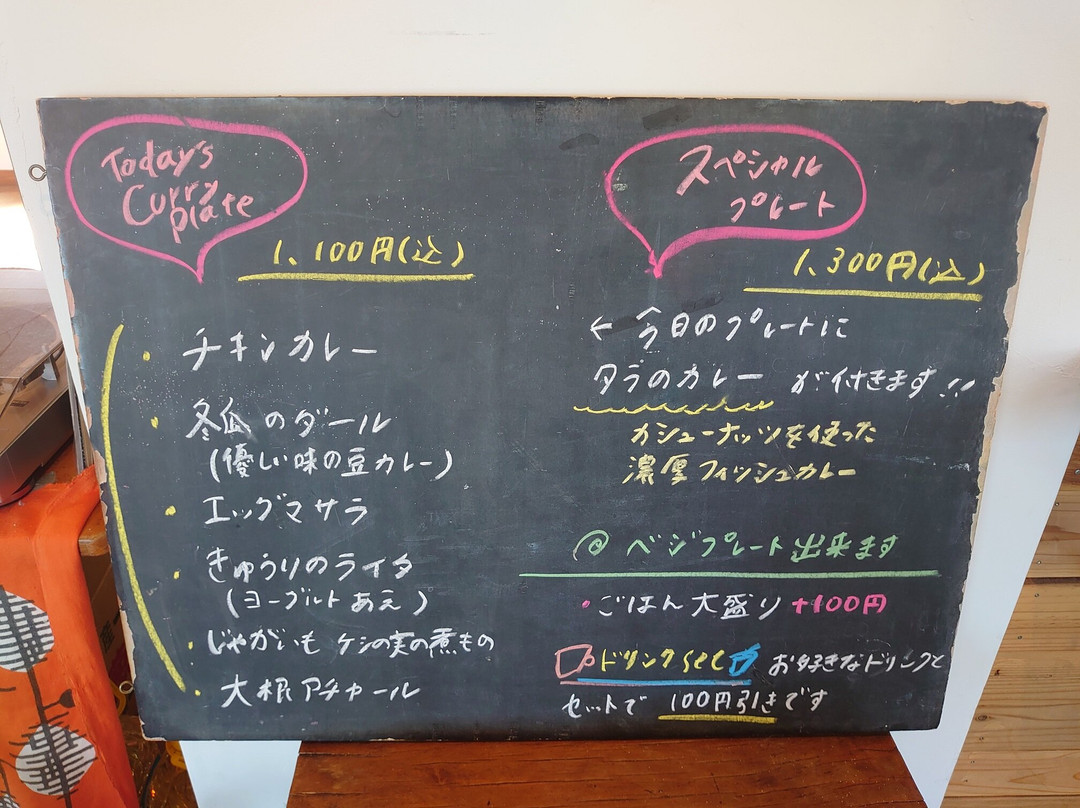 Today's
Curry
plate
1,100円(込)
・チキンカレー
・冬瓜のダール
(優しい味の豆カレー)
・エッグマサラ
・きゅうりのライタ
(ヨーグルトあえ)
・じゃがいも ケシの実の煮もの
・大根アチャール
スペシャル
プレート
1,300円(込)
← 今日のプレートに
タラのカレー が付きます!!
カシューナッツを使った
濃厚フィッシュカレー
@ ベジプレート出来ます
・ごはん大盛り+100円
ドリンクset お好きなドリンクと
セットで 100円引きです